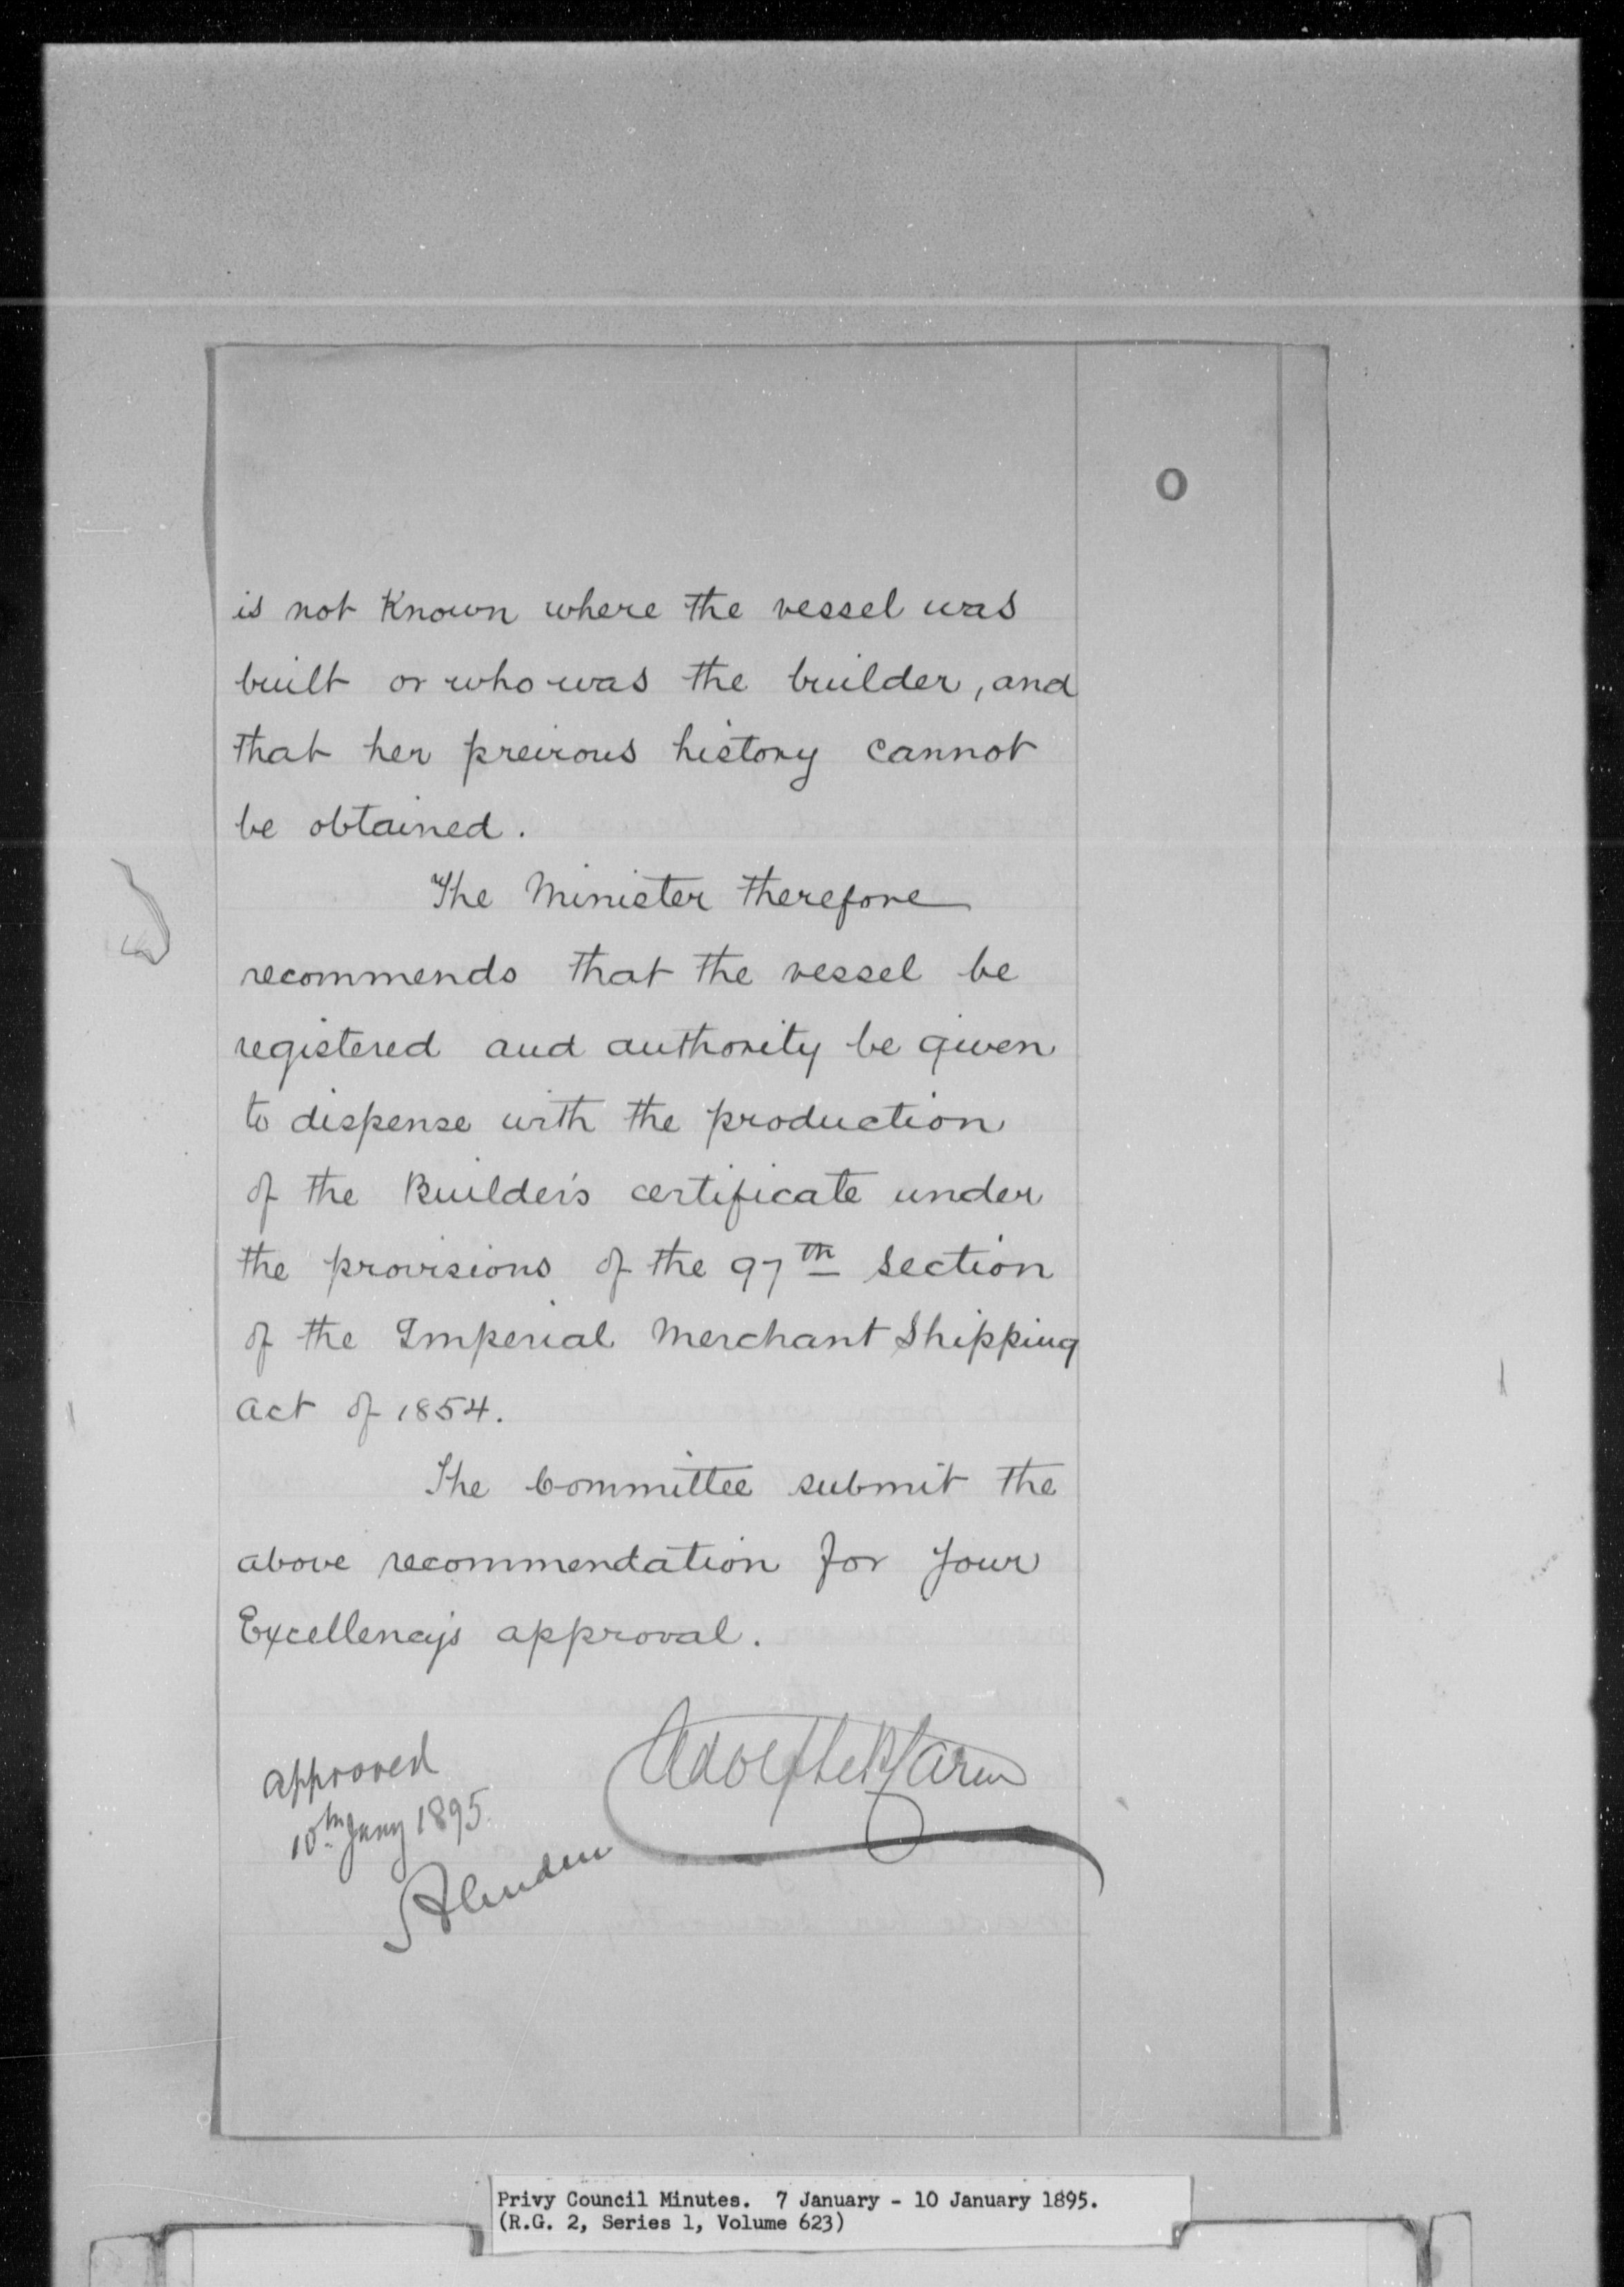 O
is not Known where the vessel was
built or who was the builder, and
that her previous history cannot
be obtained.
The Minister therefore
recommends that the vessel be
registered and authority be given
to dispense with the production
of the Builder's certificate under
the provisions of the 97th Section
of the Imperial Merchant Shipping
Act of 1854.
The Committee submit the
above recommendation for Your
Excellency's approval.
Adolphe P. Caron
approved
10th Jany 1895.
Aberdeen
Privy Council Minutes. 7 January - 10 January 1895.
(R.G. 2, Series 1, Volume 623)